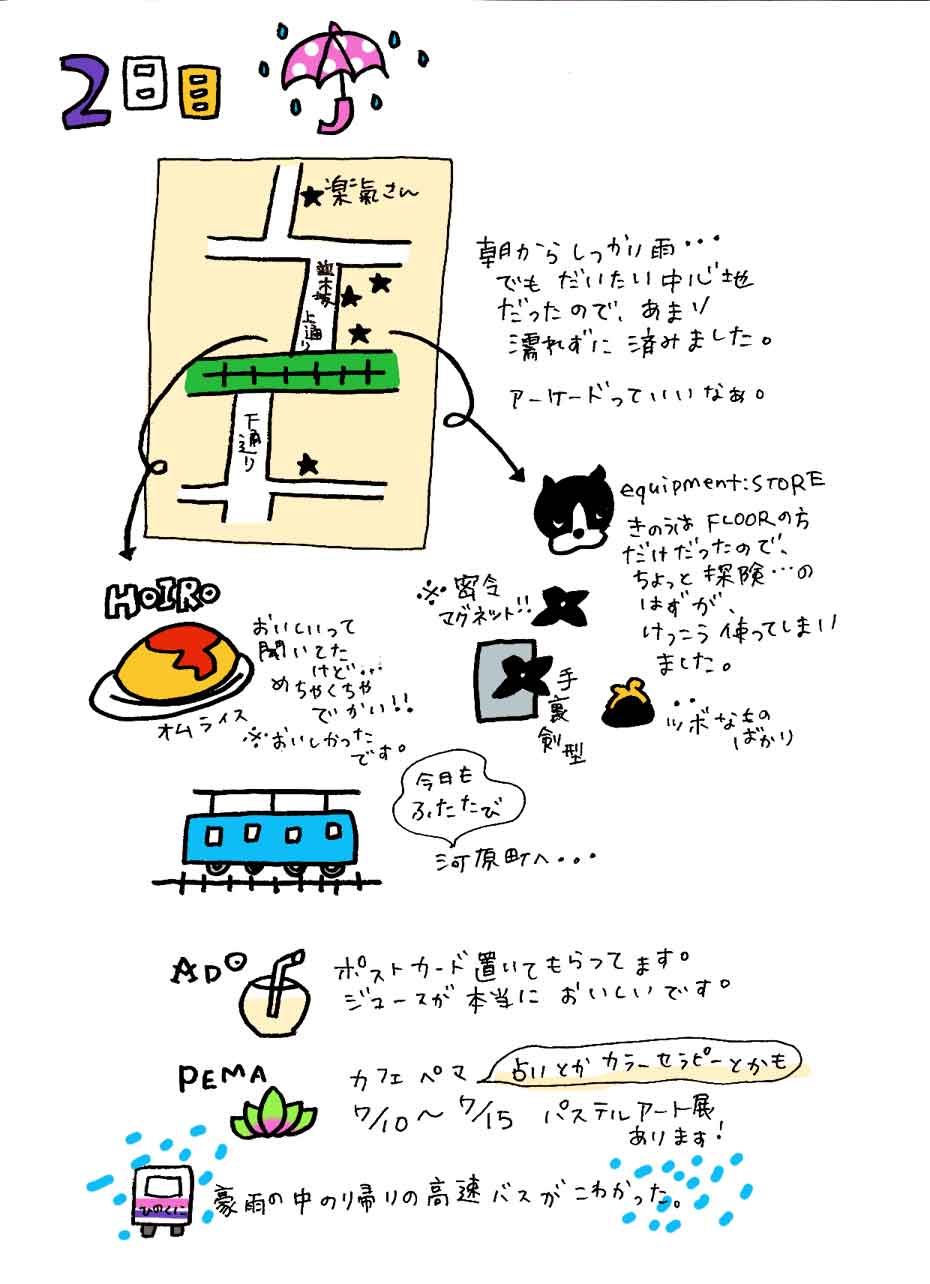 2日目
楽氣さん
並木坂
上通り
下通り
朝からしっかり雨・・・
でも だいたい 中心地
だったので、あまり
濡れずに 済みました。
アーケードっていいなぁ。
equipment:STORE
きのうは FLOORの方
だけだったので、
ちょっと 探険・・・の
はずが、
けっこう 使ってしまい
ました。
※密令
マグネット!!
手裏剣型
ツボなもの
ばかり
HOIRO
おいしいって
聞いてた
けど・・・
めちゃくちゃ
でかい!!
オムライス
※おいしかった
です。
今日も
ふたたび
河原町へ・・・
ADO
ポストカード置いてもらってます。
ジュースが 本当に おいしいです。
PEMA
カフェ ペマ
占いとか カラーセラピーとかも
7/10〜7/15 パステルアート展
あります!
ひのくに
豪雨の中のり帰りの高速バスがこわかった。